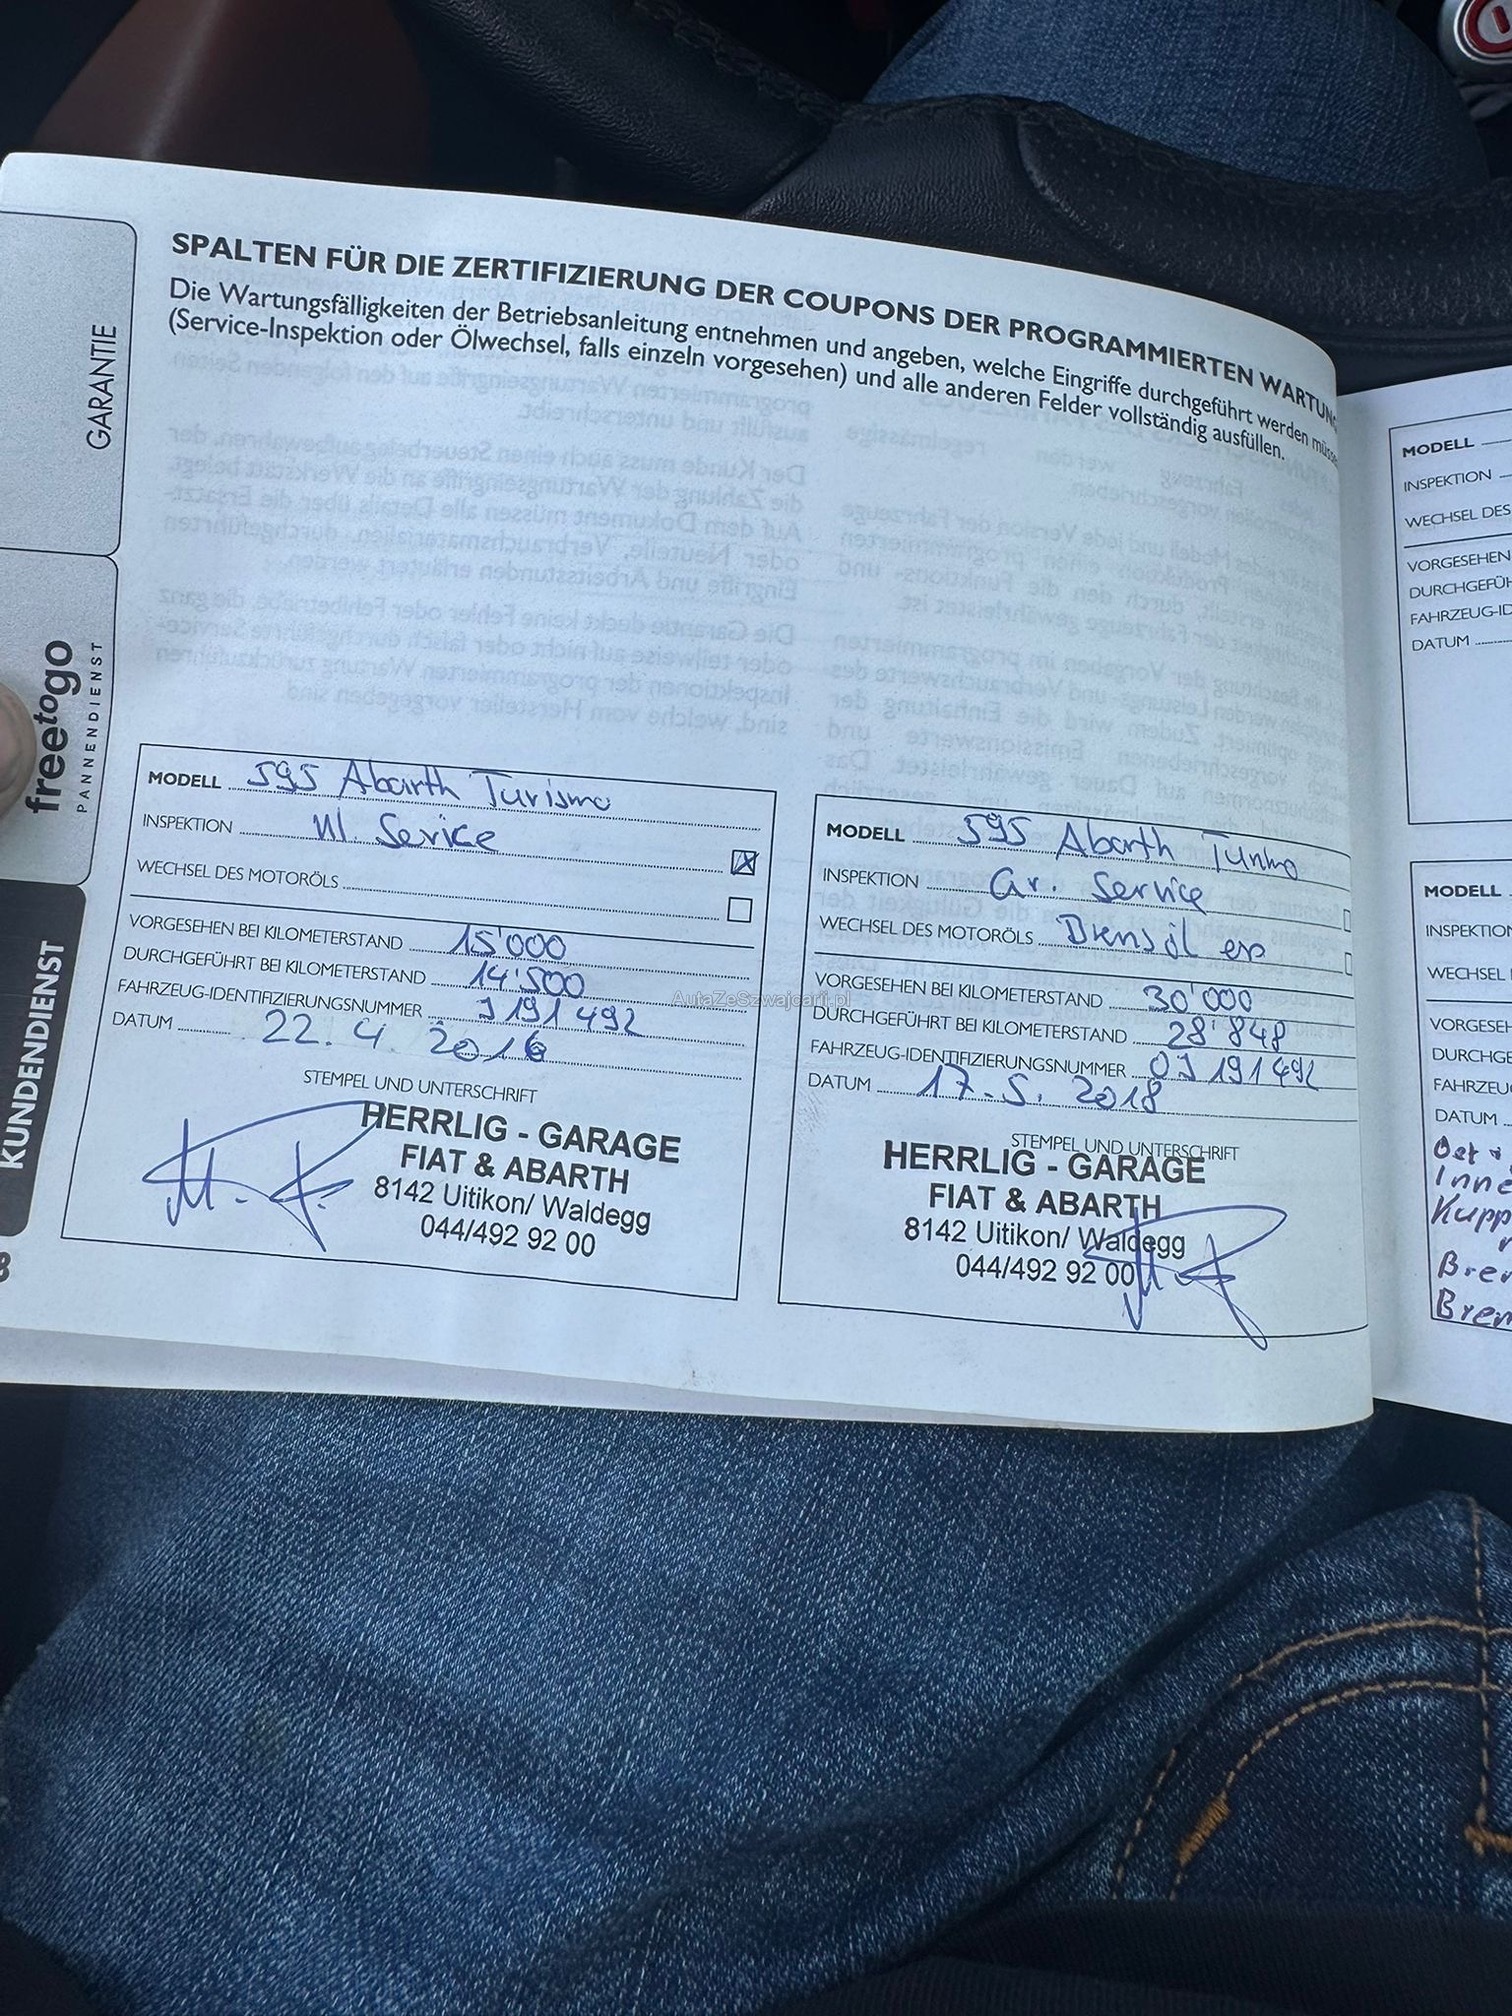 SPALTEN FÜR DIE ZERTIFIZIERUNG DER COUPONS DER PROGRAMMIERTEN WARTUN
Die Wartungsfälligkeiten der Betriebsanleitung entnehmen und angeben, welche Eingriffe durchgeführt werden müsse
(Service-Inspektion oder Ölwechsel, falls einzeln vorgesehen) und alle anderen Felder vollständig ausfüllen.
GARANTIE
freetogo
PANNENDIENST
KUNDENDIENST
MODELL 595 Abarth Turismo
INSPEKTION Kl. Service
WECHSEL DES MOTORÖLS
VORGESEHEN BEI KILOMETERSTAND 15'000
DURCHGEFÜHRT BEI KILOMETERSTAND 14'500
FAHRZEUG-IDENTIFIZIERUNGSNUMMER J191492
DATUM 22. 4. 2016
STEMPEL UND UNTERSCHRIFT
HERRLIG - GARAGE
FIAT & ABARTH
8142 Uitikon/ Waldegg
044/492 92 00
MODELL 595 Abarth
INSPEKTION Gr. Service
WECHSEL DES MOTORÖLS
VORGESEHEN BEI KILOMETERSTAND 30'000
DURCHGEFÜHRT BEI KILOMETERSTAND 28'848
FAHRZEUG-IDENTIFIZIERUNGSNUMMER 0J191492
DATUM 17. 5. 2018
STEMPEL UND UNTERSCHRIFT
HERRLIG - GARAGE
FIAT & ABARTH
8142 Uitikon/ Waldegg
044/492 92 00
AutaZeSzwajcarii.pl
MODELL
INSPEKTION
WECHSEL DES
VORGESEHEN
DURCHGEFÜH
FAHRZEUG-ID
DATUM
MODELL
INSPEKTION
WECHSEL
VORGESEH
DURCHGE
FAHRZEU
DATUM
Inne
Kupp
Brem